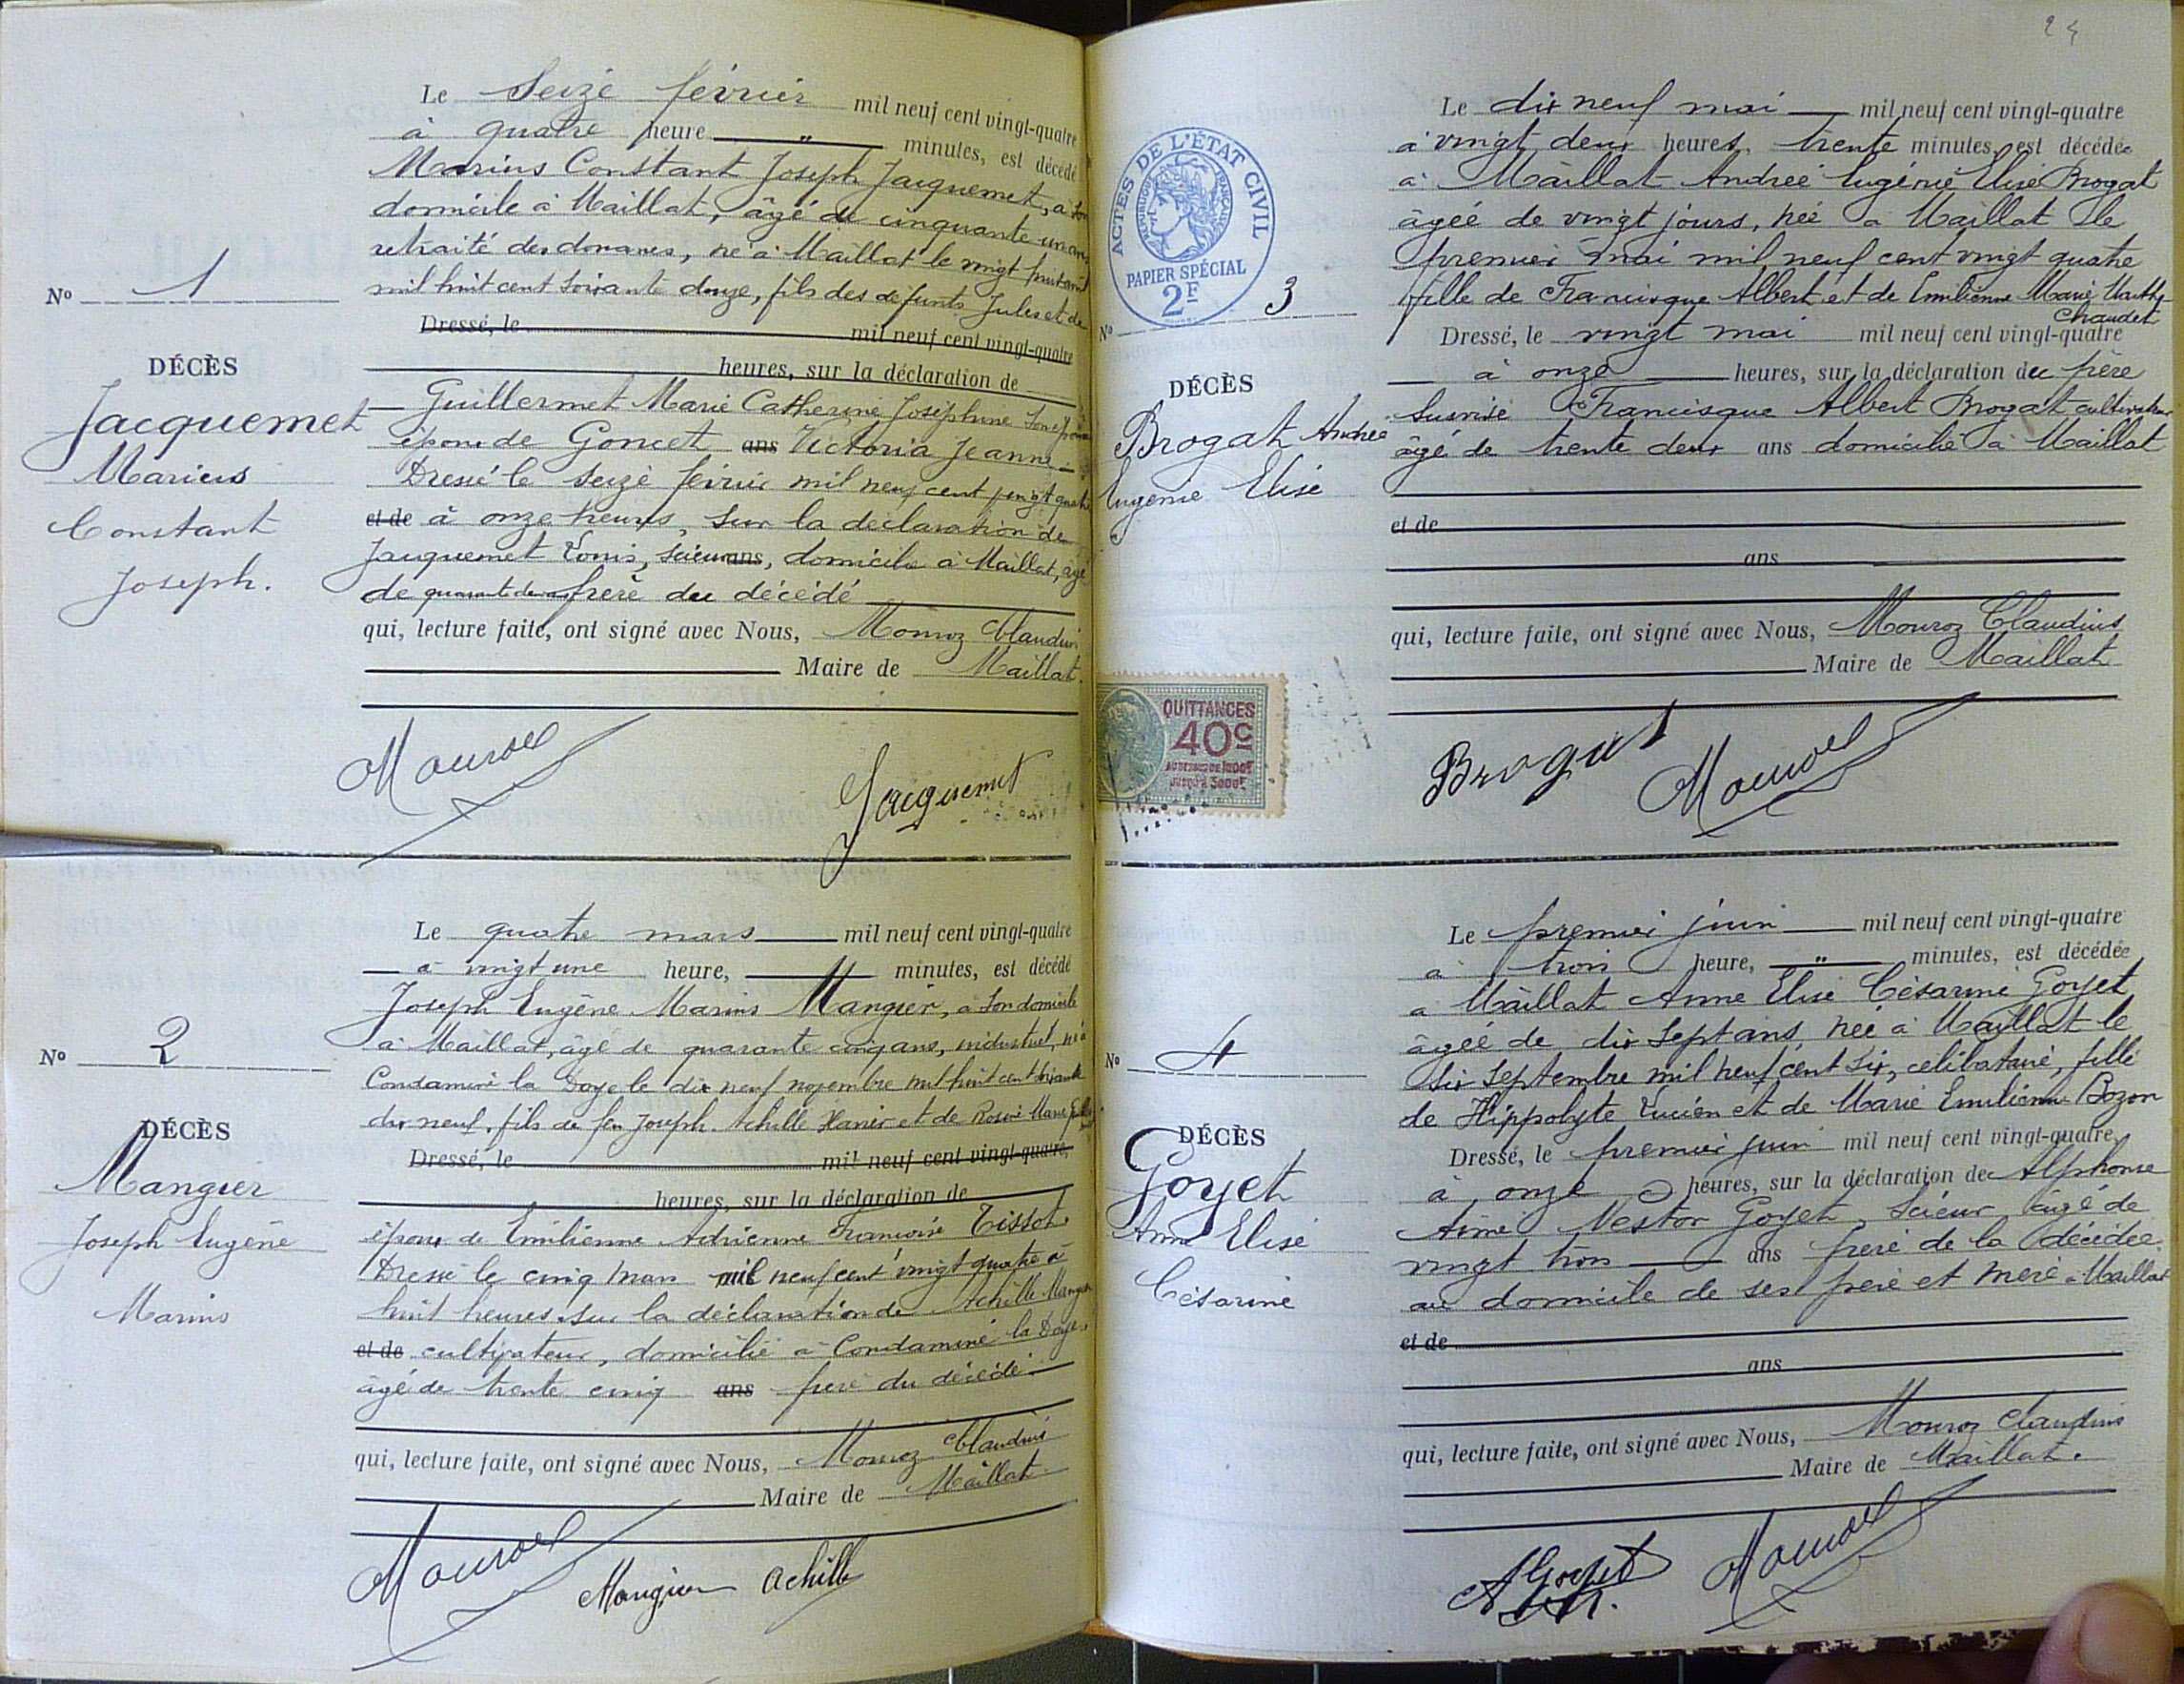 Le Seize février mil neuf cent vingt-quatre
à quatre heure " minutes, est décédé
Marius Constant Joseph Jacquemet, à son
domicile à Maillat, âgé de cinquante un ans
retraité des douanes, né à Maillat le vingt huit
mil huit cent soixante douze, fils des défunts Jules et de
Nº 1
Dressé, le mil neuf cent vingt-quatre
heures, sur la déclaration de
DÉCÈS
Jacquemet
Marius
Constant
Joseph.
Guillermet Marie Catherine Joséphine
époux de Goncet ans Victoria Jeanne
Dressé le seize février mil neuf cent vingt quatre
et de à onze heures, sur la déclaration de
Jacquemet Louis, scieur ans, domicilié à Maillat, âgé
de quarante deux ans frère du décédé
qui, lecture faite, ont signé avec Nous, Mouroz Claudius
Maire de Maillat.
Mouroz
Jacquemet
Le quatre mars mil neuf cent vingt-quatre
à vingt une heure, minutes, est décédé
Joseph Eugène Marius Mangier, à son domicile
à Maillat, âgé de quarante cinq ans, industriel, né à
Condamine la Doye le dix neuf novembre mil huit cent soixante
dix neuf, fils de feu Joseph Achille Xavier et de Rosine Marie
Nº 2
DÉCÈS
Mangier
Joseph Eugène
Marius
Dressé, le mil neuf cent vingt-quatre,
heures, sur la déclaration de
époux de Emilienne Adrienne Françoise Tissot
Dressé le cinq mars mil neuf cent vingt quatre à
huit heures sur la déclaration de Achille Mangier
et de cultivateur, domicilié à Condamine la Doye,
âgé de trente cinq ans frère du décédé
qui, lecture faite, ont signé avec Nous, Mouroz Claudius
Maire de Maillat
Mouroz
Mangier Achille
24
ACTES DE L'ÉTAT CIVIL
RÉPUBLIQUE FRANÇAISE
PAPIER SPÉCIAL
2F
Le dix neuf mai mil neuf cent vingt-quatre
à vingt deux heures, trente minutes, est décédée
à Maillat Andrée Eugénie Elise Brogat
âgée de vingt jours, née à Maillat le
premier mai mil neuf cent vingt quatre
fille de Francisque Albert et de Emilienne Marie Marthe
Chaudet
Nº 3
DÉCÈS
Brogat Andrée
Eugénie Elise
Dressé, le vingt mai mil neuf cent vingt-quatre
à onze heures, sur la déclaration du père
susvisé Francisque Albert Brogat cultivateur
âgé de trente deux ans domicilié à Maillat
et de
ans
qui, lecture faite, ont signé avec Nous, Mouroz Claudius
Maire de Maillat
QUITTANCES
40c
AU DESSUS DE 1000F
JUSQU'A 3000F
Brogat
Mouroz
Le premier juin mil neuf cent vingt-quatre
à trois heure, " minutes, est décédée
à Maillat Anne Elise Césarine Goyet
âgée de dix sept ans, née à Maillat le
six septembre mil neuf cent six, célibataire, fille
de Hippolyte Lucien et de Marie Emilienne Bozon
Nº 4
DÉCÈS
Goyet
Anne Elise
Césarine
Dressé, le premier juin mil neuf cent vingt-quatre,
à onze heures, sur la déclaration de Alphonse
Aimé Nestor Goyet, scieur, âgé de
vingt trois ans frère de la décédée
au domicile de ses père et mère à Maillat
et de
ans
qui, lecture faite, ont signé avec Nous, Mouroz Claudius
Maire de Maillat.
A Goyet
Mouroz